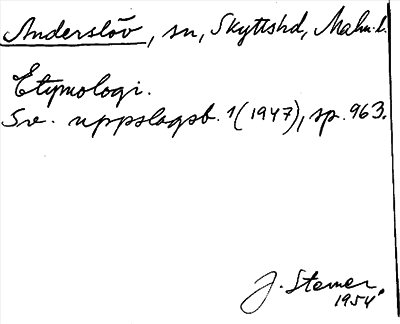 Anderslöv, sn, Skyttshd, Malm.l.
Etymologi.
Sv. uppslagsb. 1 (1947), sp. 963.
J. Sterner.
1954.